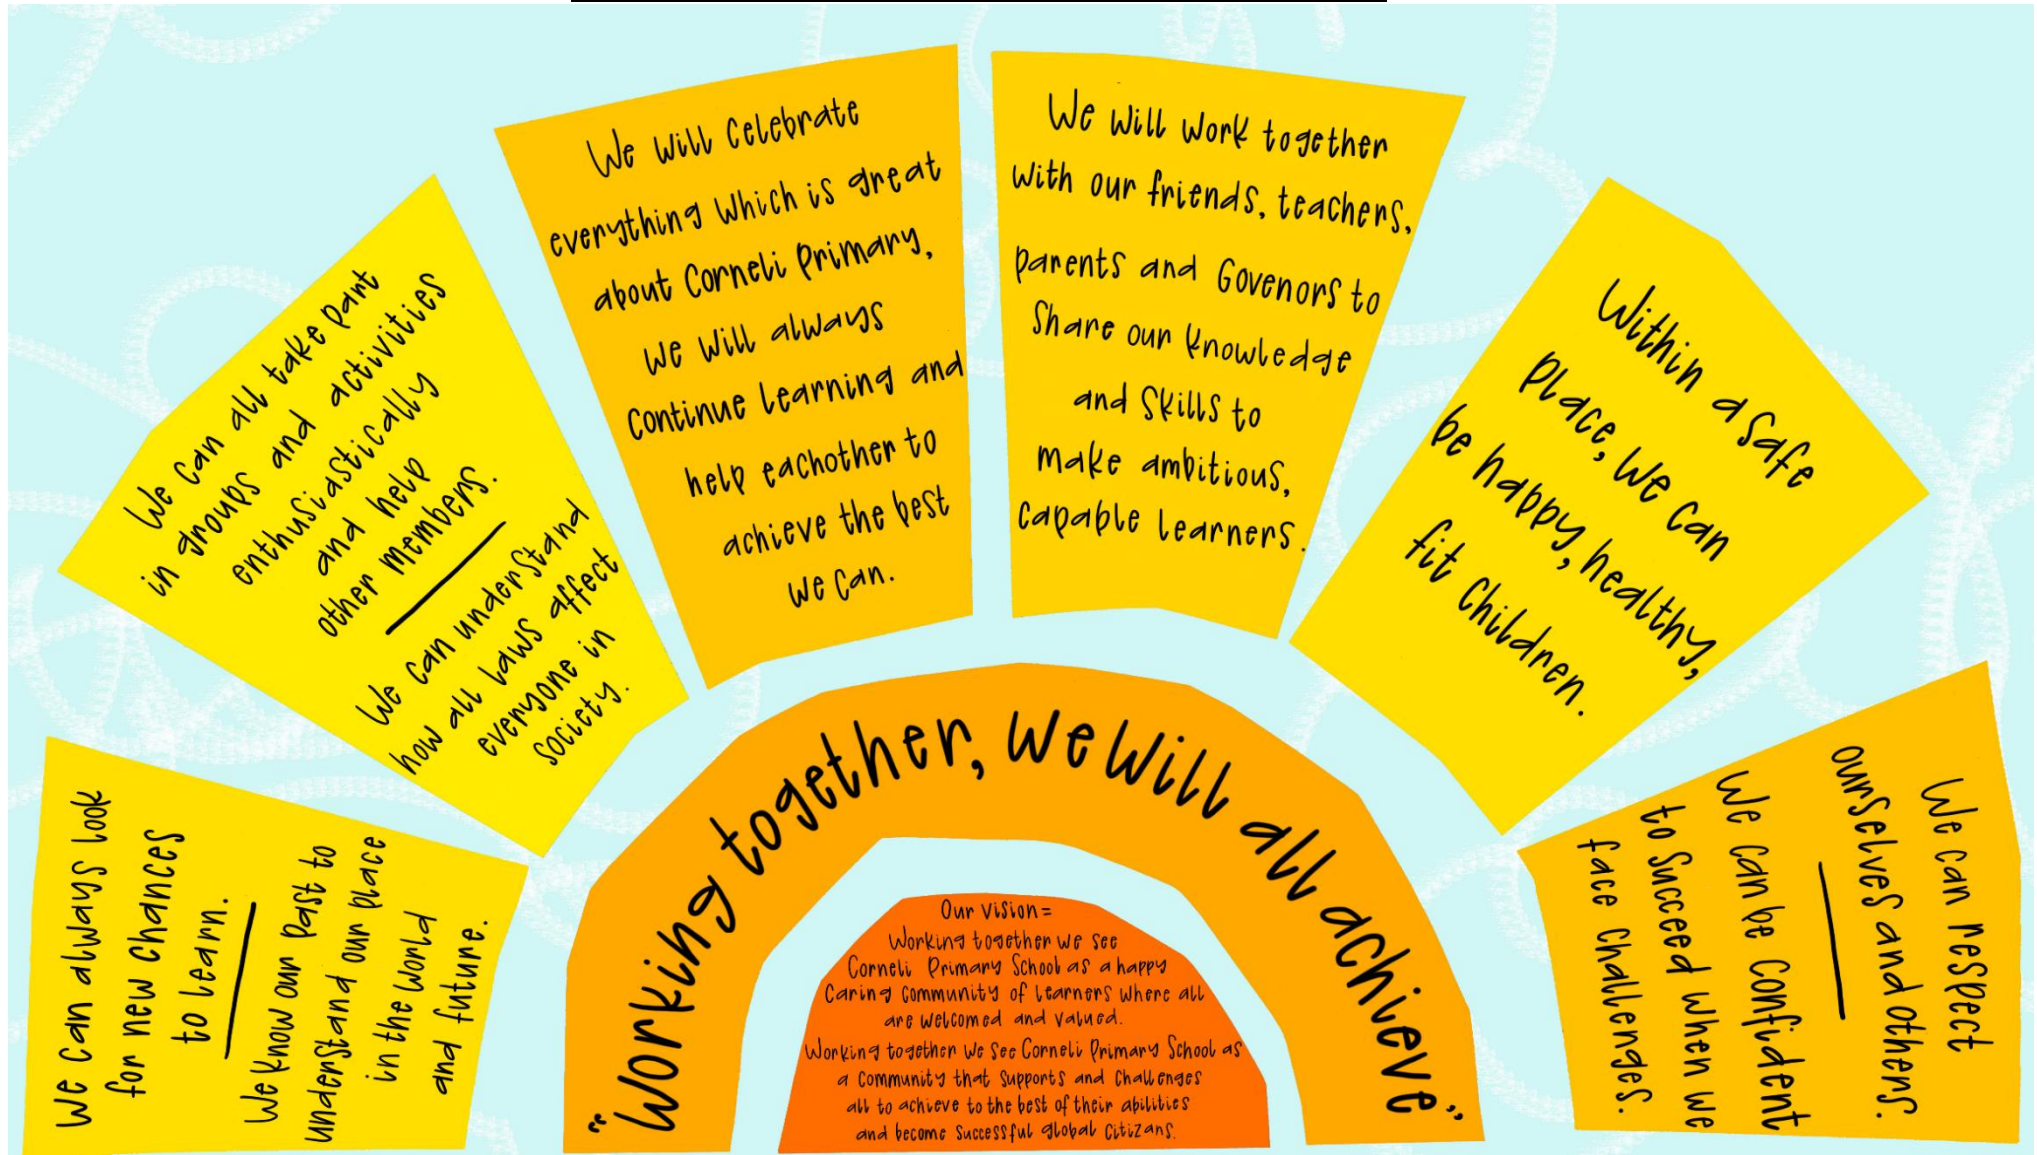 We can always look
for new chances
to learn.
We know our past to
understand our place
in the world
and future.
We can all take part
in groups and activities
enthusiastically
and help
other members.
We can understand
how all laws affect
everyone in
society.
We will celebrate
everything which is great
about Corneli Primary,
we will always
continue learning and
help eachother to
achieve the best
we can.
We will work together
with our friends, teachers,
parents and Govenors to
share our knowledge
and skills to
make ambitious,
capable learners.
Within a safe
place, we can
be happy, healthy,
fit children.
We can respect
ourselves and others.
We can be confident
to succeed when we
face challenges.
"Working together, we will all achieve"
Our vision =
Working together we see
Corneli Primary School as a happy
caring community of learners where all
are welcomed and valued.
Working together we see Corneli Primary School as
a community that supports and challenges
all to achieve to the best of their abilities
and become successful global citizans.